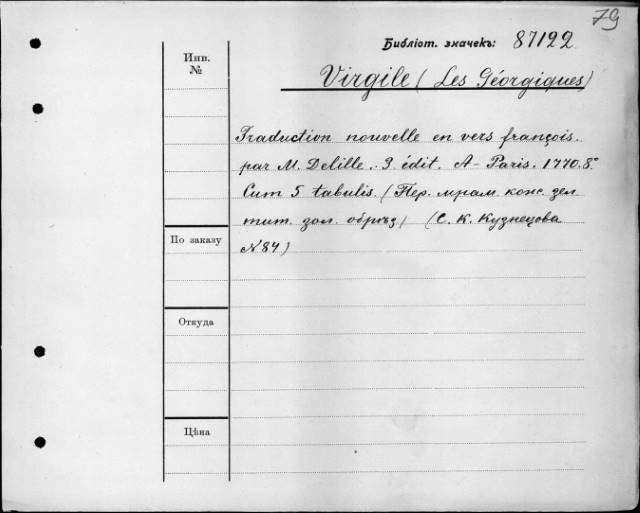 79
Библіот. значекъ: 87122
Инв.
№
Virgile (Les Géorgiques)
Traduction nouvelle en vers françois.
par M. Delille. 3 édit. A-Paris. 1770. 8°
Cum 5 tabulis. (Пер. мрам. кожс. зел.
тит. зол. обрѣз) (С. К. Кузнецова
N 84)
По заказу
Откуда
Цѣна